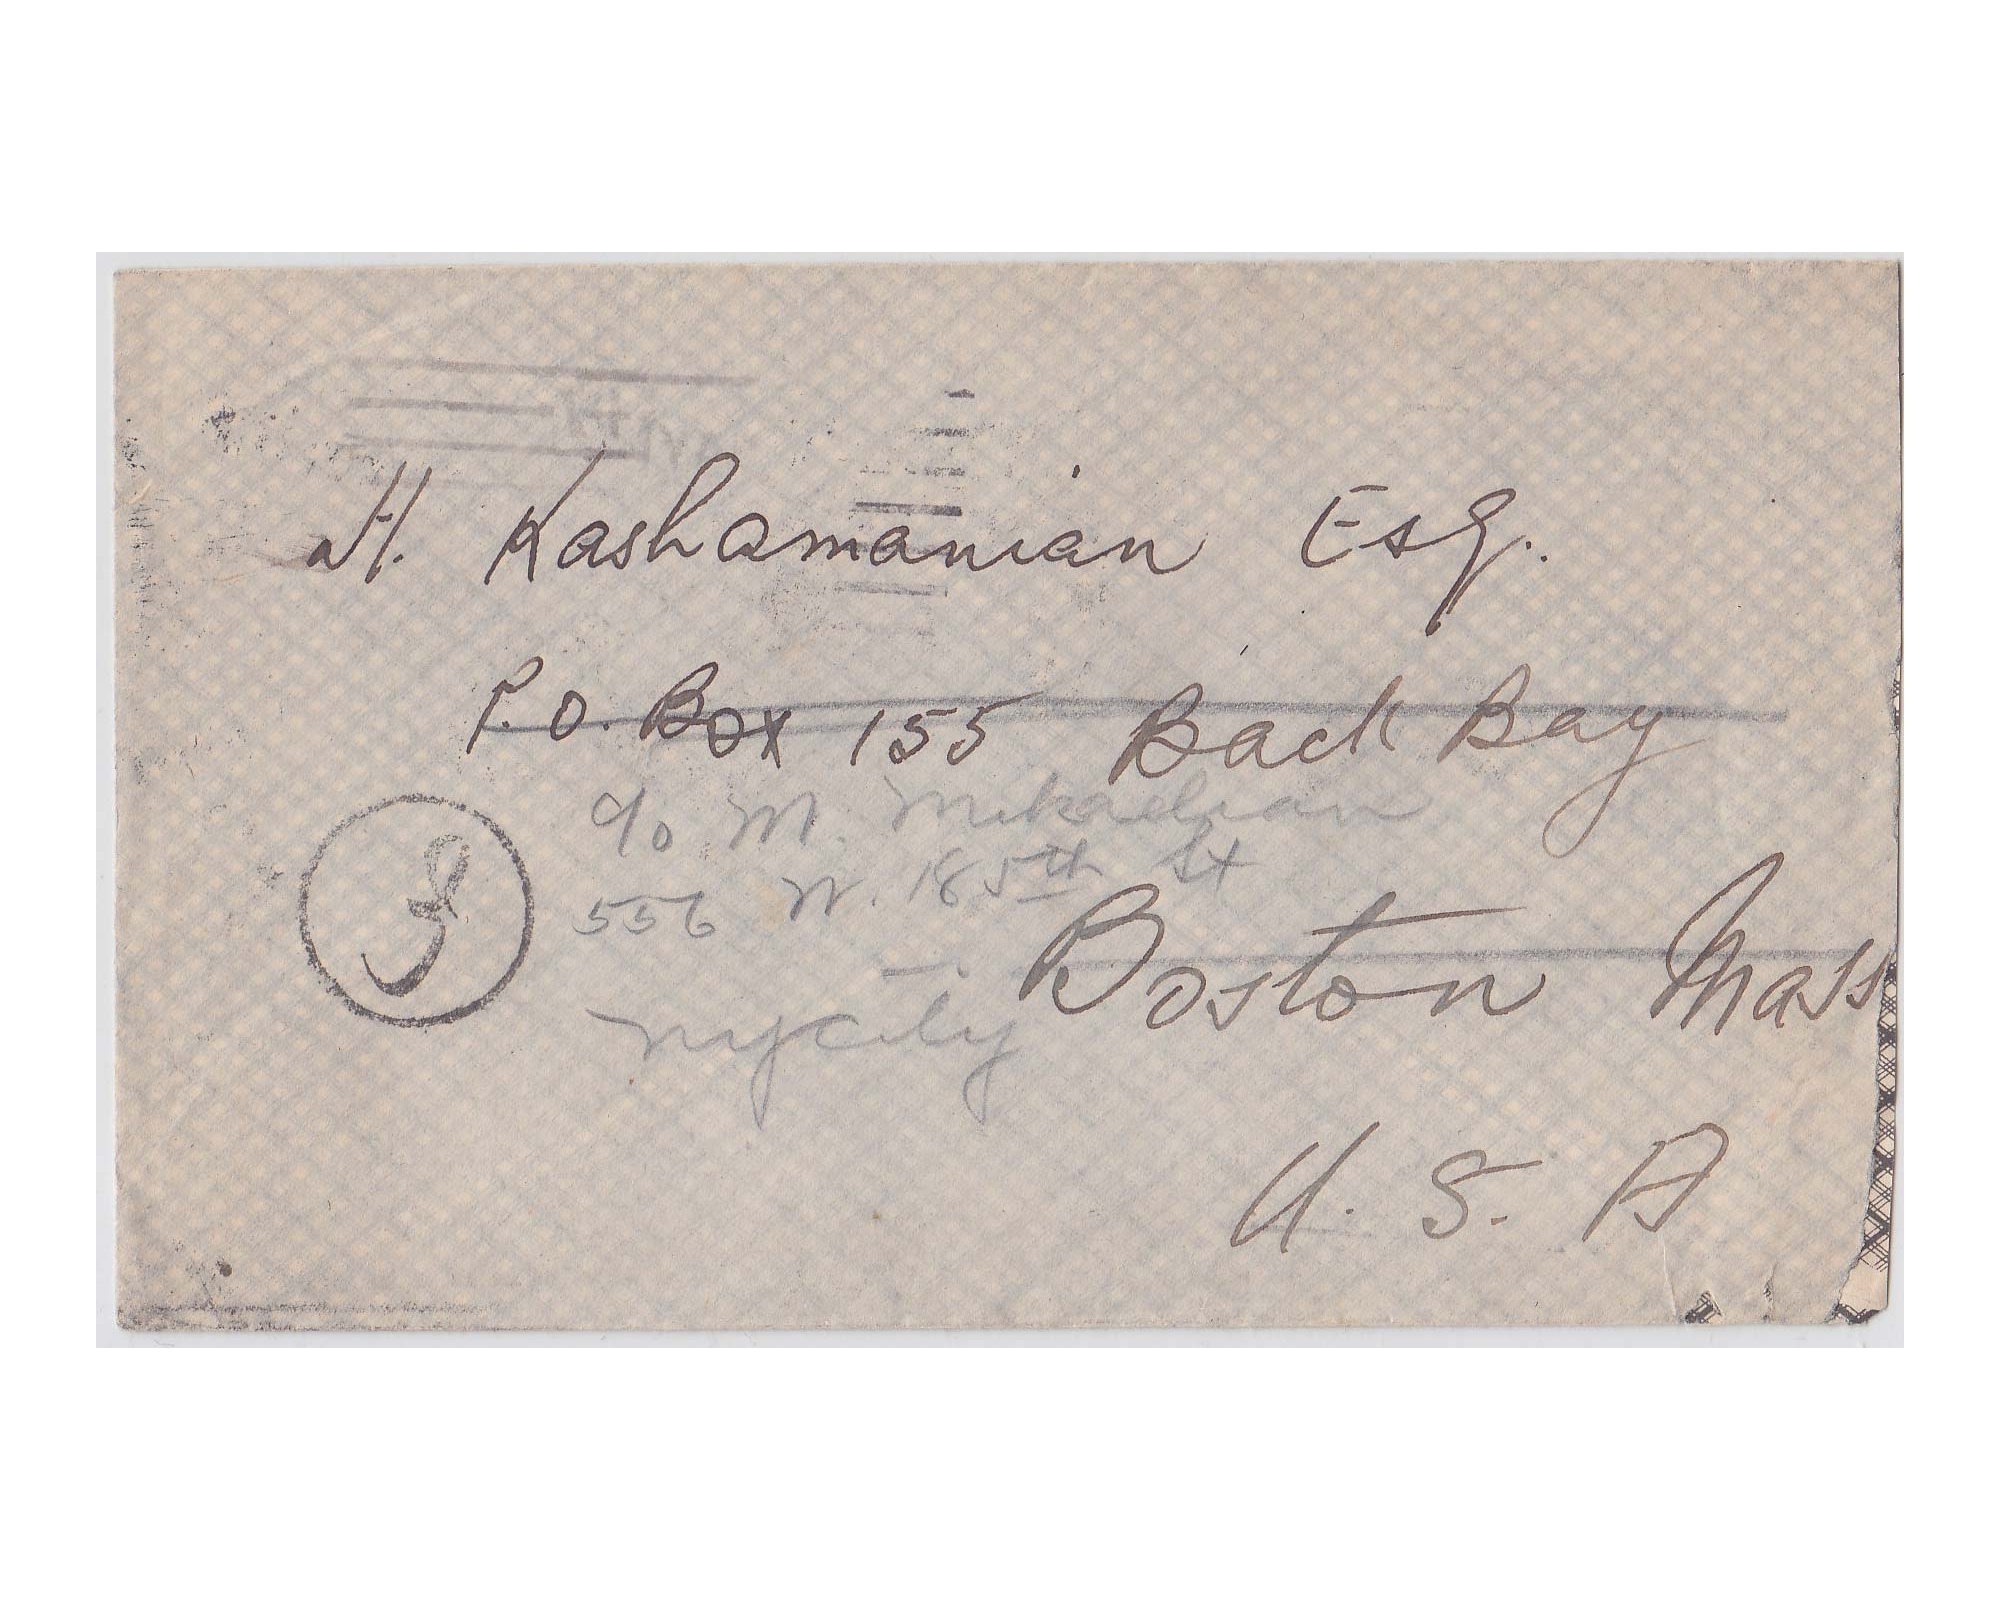 H. Kashamanian Esq.
P.O. Box 155 Back Bay
c/o M. Mikaelian
556 W. 185th St
Boston Mass
NYCity
U. S. A